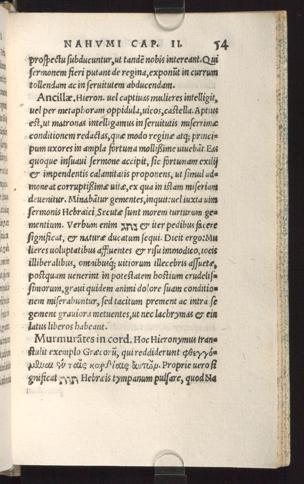 NAHVMI CAP. II. 54
prospectu subducuntur, ut tandẽ nobis intereant. Qui
sermonem fieri putant de regina, exponũt in currum
tollendam ac in seruitutem abducendam.
Ancillæ. Hieron. uel captiuas mulieres intelligit,
uel per metaphoram oppidula, uicos, castella. Aptius
est, ut matronas intelligamus in seruitutis miserrimæ
conditionem redactas, quæ modo reginæ atq; princi-
pum uxores in ampla fortuna mollissime uiuebãt. Eas
quoque insuaui sermone accipit, sic fortunam exilij
& impendentis calamitatis proponens, ut simul ad-
moneat corruptissimæ uitæ, ex qua in istam miseriam
deuenitur. Minabãtur gementes, inquit: uel iuxta uim
sermonis Hebraici, Secutæ sunt morem turturum ge-
mentium. Verbum enim נהג & iter pedibus facere
significat, & naturæ ducatum sequi. Dicit ergo: Mu
lieres uoluptatibus affluentes & risu immodico, iocis
illiberalibus, omnibusq; uitiorum illecebris assuetæ,
postquam uenerint in potestatem hostium crudelis-
simorum, graui quidem animi dolore suam conditio-
nem miserabuntur, sed tacitum prement ac intra se
gement grauiora metuentes, ut nec lachrymas & eiu
latus liberos habeant.
Murmurãtes in cord. Hoc Hieronymus tran-
stulit exemplo Græcorũ, qui reddiderunt φθεγγό-
μεναι ἐν ταῖς καρδίαις αὐτῶν. Proprie uero si
gnificat תפף Hebræis tympanum pulsare, quod Na